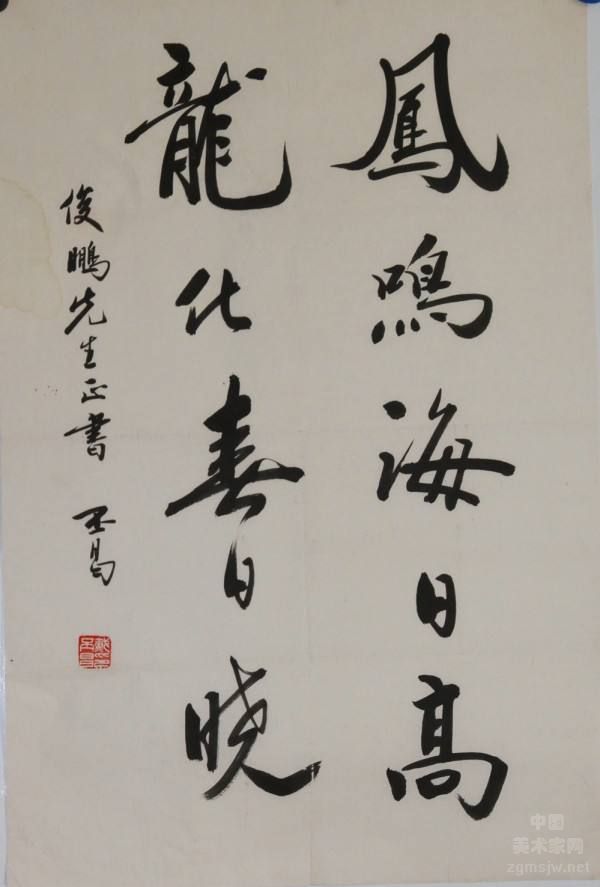 鳳鳴海日高
龍化春日晓
俊鵬先生正書
中国
美术家网
zgmsjw.net